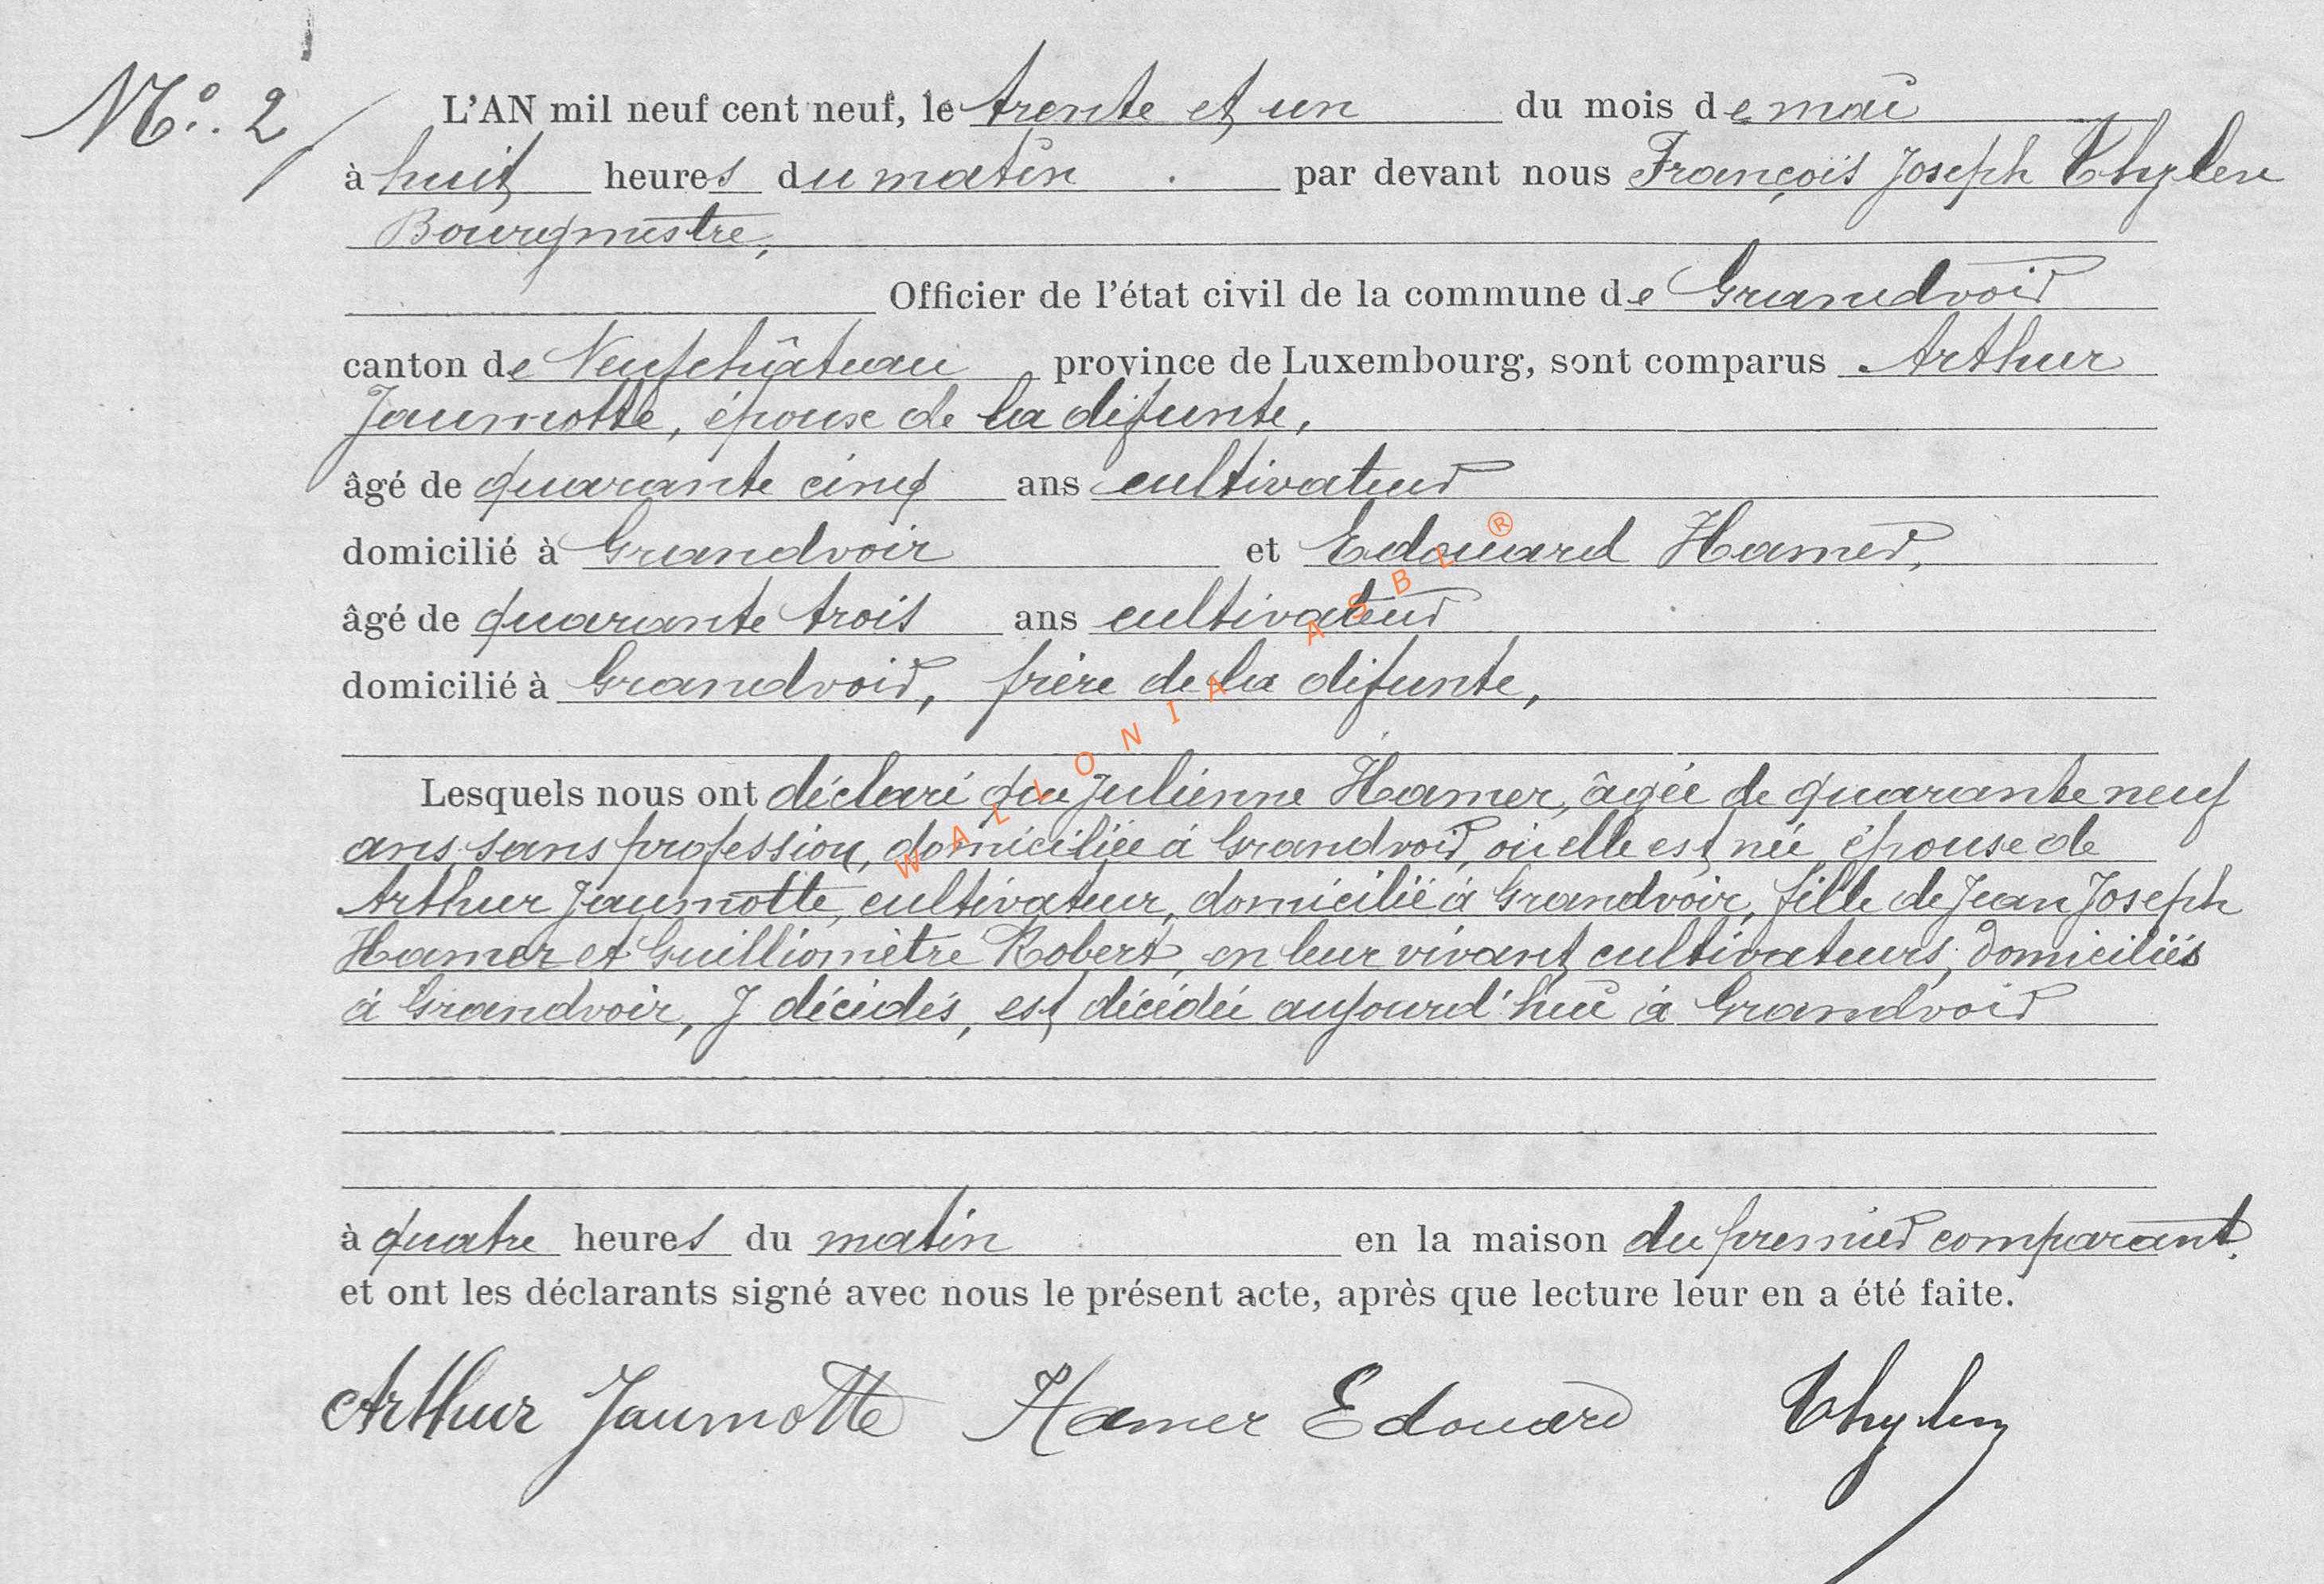 N°. 2
L'AN mil neuf cent neuf, le trente et un du mois de mai
à huit heures du matin par devant nous François Joseph Thylen
Bourgmestre,
Officier de l'état civil de la commune de Grandvoir
canton de Neufchâteau province de Luxembourg, sont comparus Arthur
Jaumotte, épouse de la défunte,
âgé de quarante cinq ans cultivateur
domicilié à Grandvoir et Edouard Hamer,
âgé de quarante trois ans cultivateur
domicilié à Grandvoir, frère de la défunte,
Lesquels nous ont déclaré que Julienne Hamer, âgée de quarante neuf
ans sans profession, domiciliée à Grandvoir, où elle est née épouse de
Arthur Jaumotte, cultivateur, domicilié à Grandvoir, fille de Jean Joseph
Hamer et Guilliomètre Robert, en leur vivant cultivateurs, domiciliés
à Grandvoir, y décédés, est décédée aujourd'hui à Grandvoir
à quatre heures du matin en la maison du premier comparant.
et ont les déclarants signé avec nous le présent acte, après que lecture leur en a été faite.
Arthur Jaumotte Hamer Edouard Thylen
WALLONIA ASBL ®